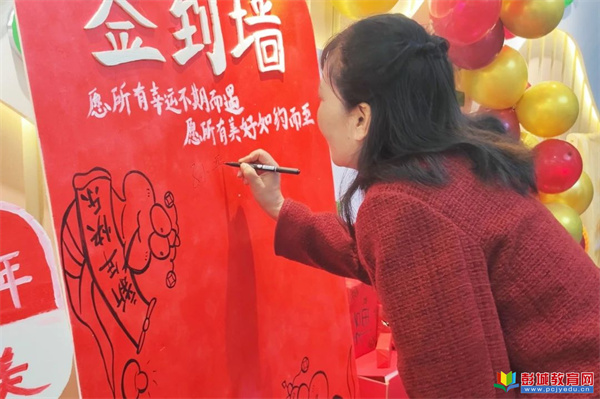 签到墙
愿所有幸运不期而遇
愿所有美好如约而至
新年快乐
年
美
彭城教育网
www.pcjyedu.cn